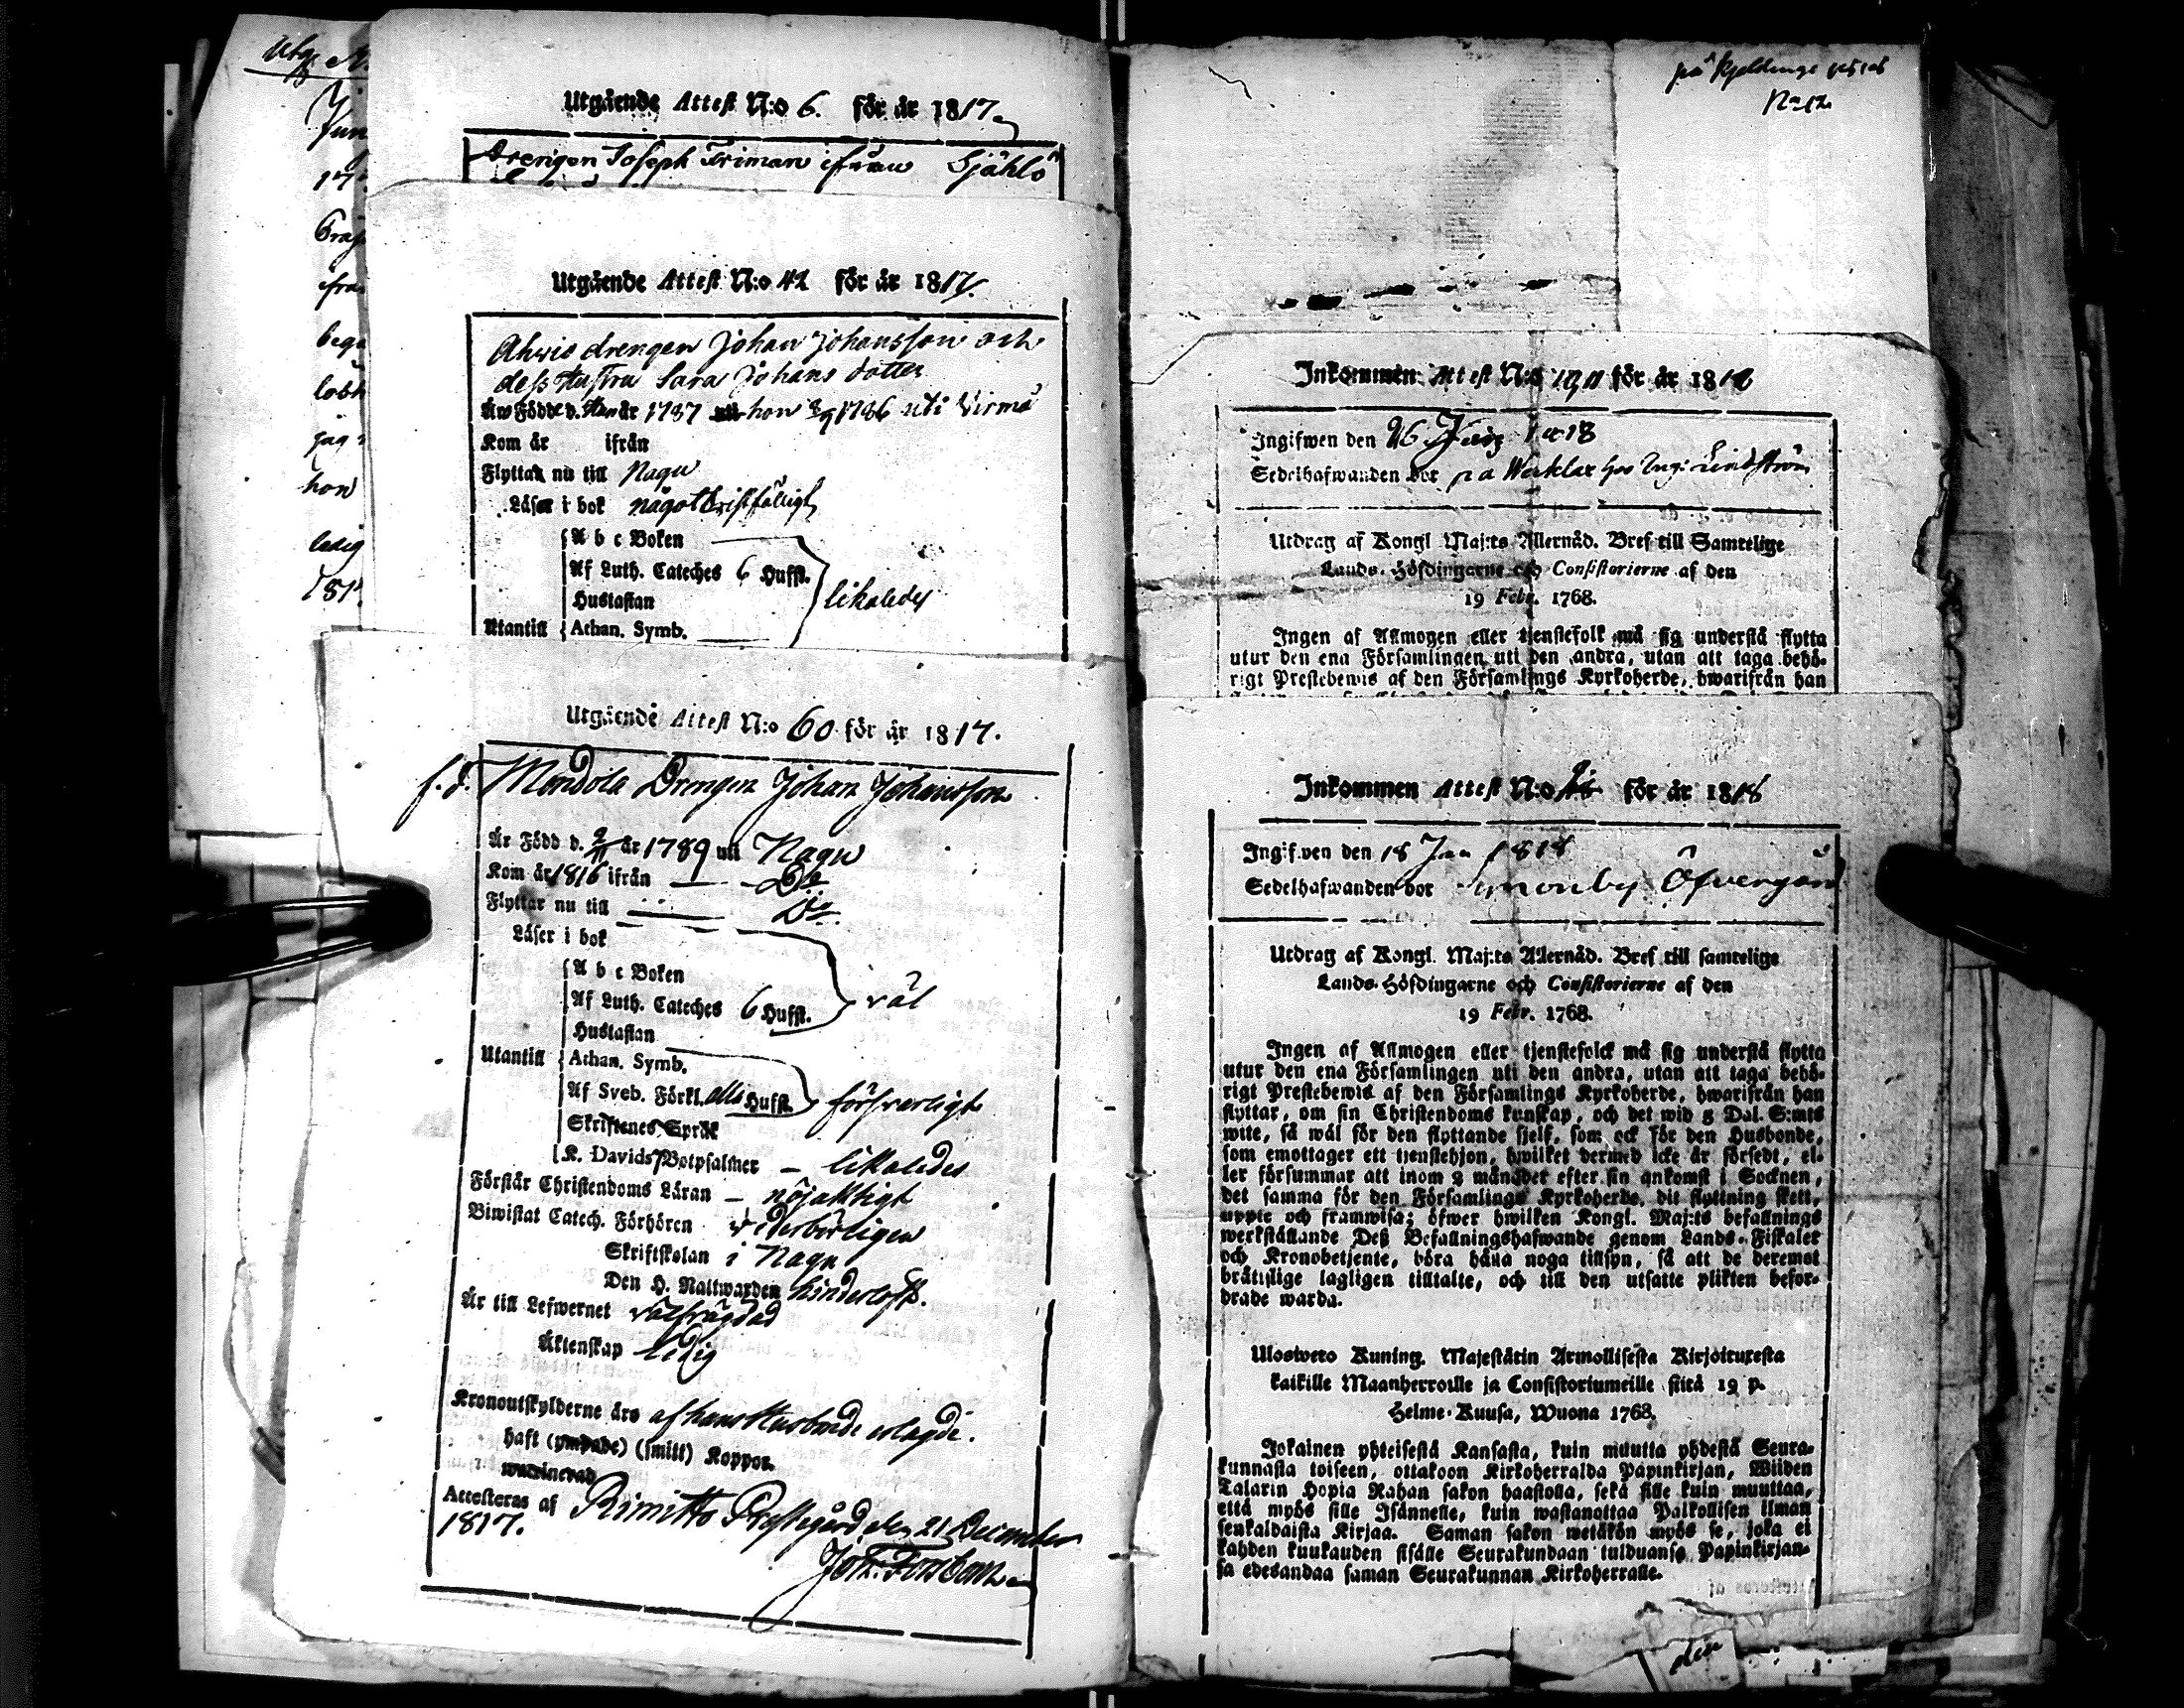 Utg. N.
Utgående Attest N:o 6. för år 1817.
Drengen Joseph Friman ifrån Själö
Utgående Attest N:o 42 för år 1817.
Ahwis drengen Johan Johansson och
dess Hustru Sara Johans dotter
Äro Födde d. Han år 1787 hon 8/9 1786 uti Virmo
Kom år ifrån
Flyttar nu till Nagu
Läser i bok något bristfälligt
A b c Boken
Af Luth. Cateches 6 Hufst.
Hustaflan
likaledes
Utantill Athan. Symb.
Utgående Attest N:o 60 för år 1817.
f. d. Mondola Drengen Johan Johansson
Är Född d. 2/11 år 1789 uti Nagu
Kom år 1816 ifrån Do
Flyttar nu till Do
Läser i bok
A b c Boken
Af Luth. Cateches 6 Hufst. väl
Hustaflan
Utantill Athan. Symb.
Af Sveb. Förkl. alla Hufst. försvarligt
Skriftenes Språk
K. Davids 7 Botpsalmer – likaledes
Förstår Christendoms Läran – nöjaktigt
Biwistat Catech. Förhören vederbörligen
Skriftskolan i Nagu
Den H. Nattwarden hinderlöst.
Är till Lefwernet välfrägdad
Äktenskap ledig
Kronoutskylderne äro af hans Husbonde erlagde.
haft (ympade) (smitt) Koppor.
waccinerad
Attesteras af Rimitto Prestegård den 21 December
1817.
Joh. Forsbom
på Kjeldinge
No 12
Inkommen Attest N:o för år 1818
Ingifwen den 26 1818
Sedelhafwanden bor på Wäcklax hos Lindström
Utdrag af Kongl Maj:ts Allernåd. Bref till Samtelige
Lands-Höfdingarne och Consistorierne af den
19 Febr. 1768.
Ingen af Allmogen eller tjenstefolk må sig understå flytta
utur den ena Församlingen uti den andra, utan att taga behö-
rigt Prestebewis af den Församlings Kyrkoherde, hwarifrån han
Inkommen Attest N:o för år 1818
Ingifwen den 18 Jan 1818
Sedelhafwanden bor Simonby Öfvergård
Utdrag af Kongl. Maj:ts Allernåd. Bref till samtelige
Lands-Höfdingarne och Consistorierne af den
19 Febr. 1768.
Ingen af Allmogen eller tjenstefolck må sig understå flytta
utur den ena Församlingen uti den andra, utan att taga behö-
rigt Prestebewis af den Församlings Kyrkoherde, hwarifrån han
flyttar, om sin Christendoms kunskap, och det wid 5 Dal. S:mts
wite, så wäl för den flyttande sjelf, som ock för den Husbonde,
som emottager ett tjenstehjon, hwilket dermed icke är försedt, el-
ler försummar att inom 2 månader efter sin ankomst i Socknen,
det samma för den Församlings Kyrkoherde, dit flyttning skett,
uppte och framwisa; öfwer hwilken Kongl. Maj:ts befallnings
werkställande Deß Befallningshafwande genom Lands-Fiskaler
och Kronobetjente, böra hålla noga tillsyn, så att de deremot
brättslige lagligen tilltalte, och till den utsatte plikten befor-
drade warda.
Uloswero Kuning. Majestätin Armollisesta Kirjoituxesta
kaikille Maanherroille ja Consistoriumeille siitä 19 p.
Helme-Kuusa, Wuona 1768.
Jokainen yhteisestä Kansasta, kuin muutta yhdestä Seura-
kunnasta toiseen, ottakoon Kirkoherralda Papinkirjan, Wiiden
Talarin Hopia Rahan sakon haastolla, sekä sille kuin muuttaa,
että myös sille Isännelle, kuin wastanottaa Palkollisen ilman
senkaldaista Kirjaa. Saman sakon wetäkön myös se, joka ei
kahden kuukauden sisälle Seurakundaan tulduansa Papinkirjan-
sa edesandaa saman Seurakunnan Kirkoherralle.